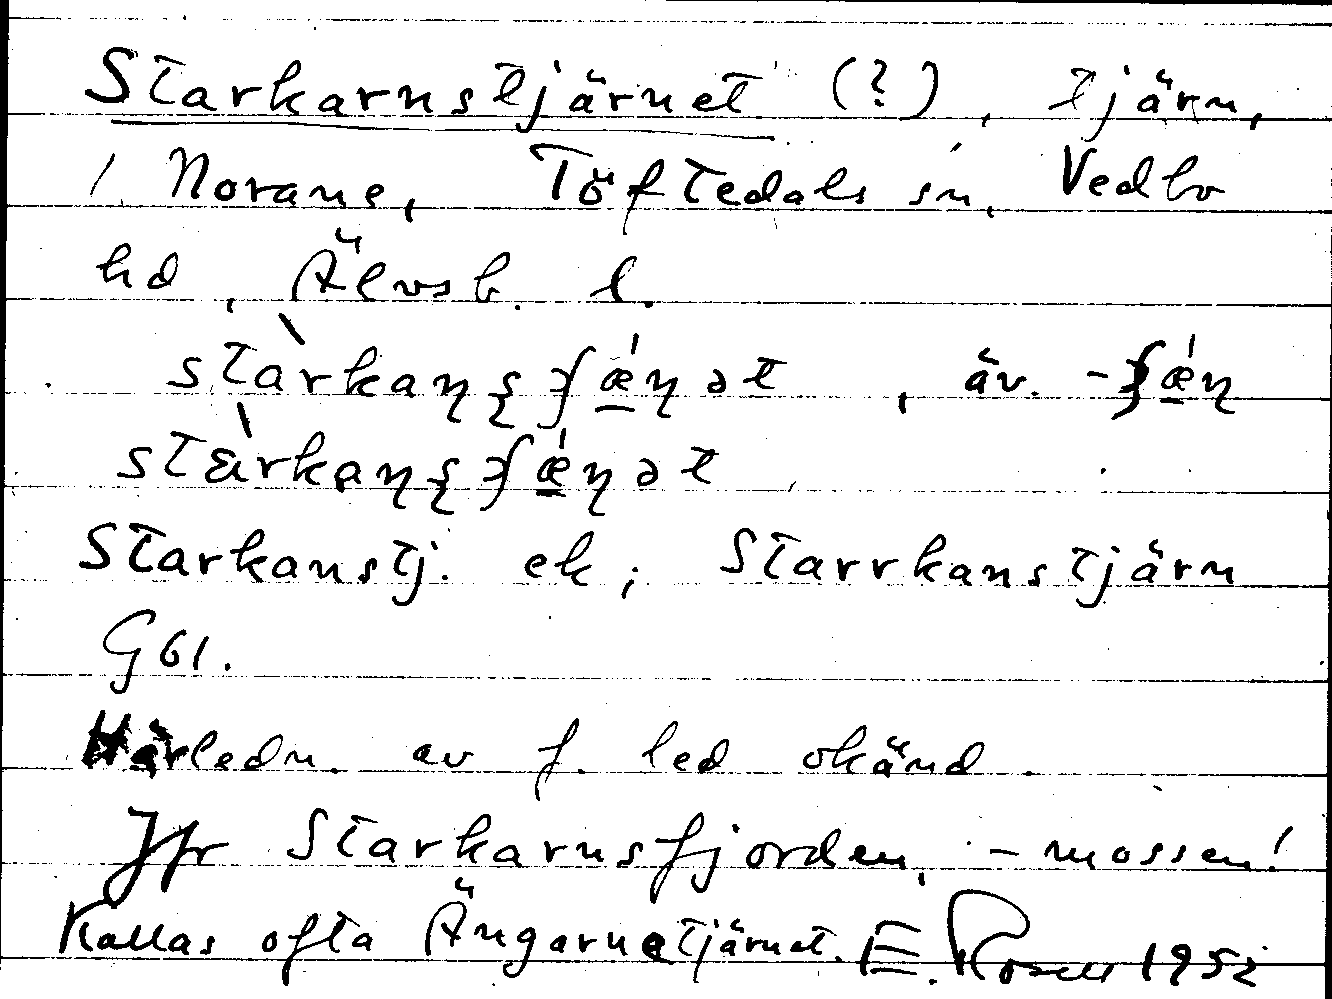 Starkarnstjärnet (?), tjärn,
i Norane, Töftedals sn, Vedbo
hd, Älvsb. l.
stàrkaɳʂʄǽɳət, äv. -ʄǽɳ
stàrkaɳʂʄǽɳət
Starkanstj. ek; Starrkanstjärn
G61.
Härledn. av f. led okänd.
Jfr Starkarnsfjorden, -mossen!
Kallas ofta Ängarnetjärnet. E. Rosell 1952